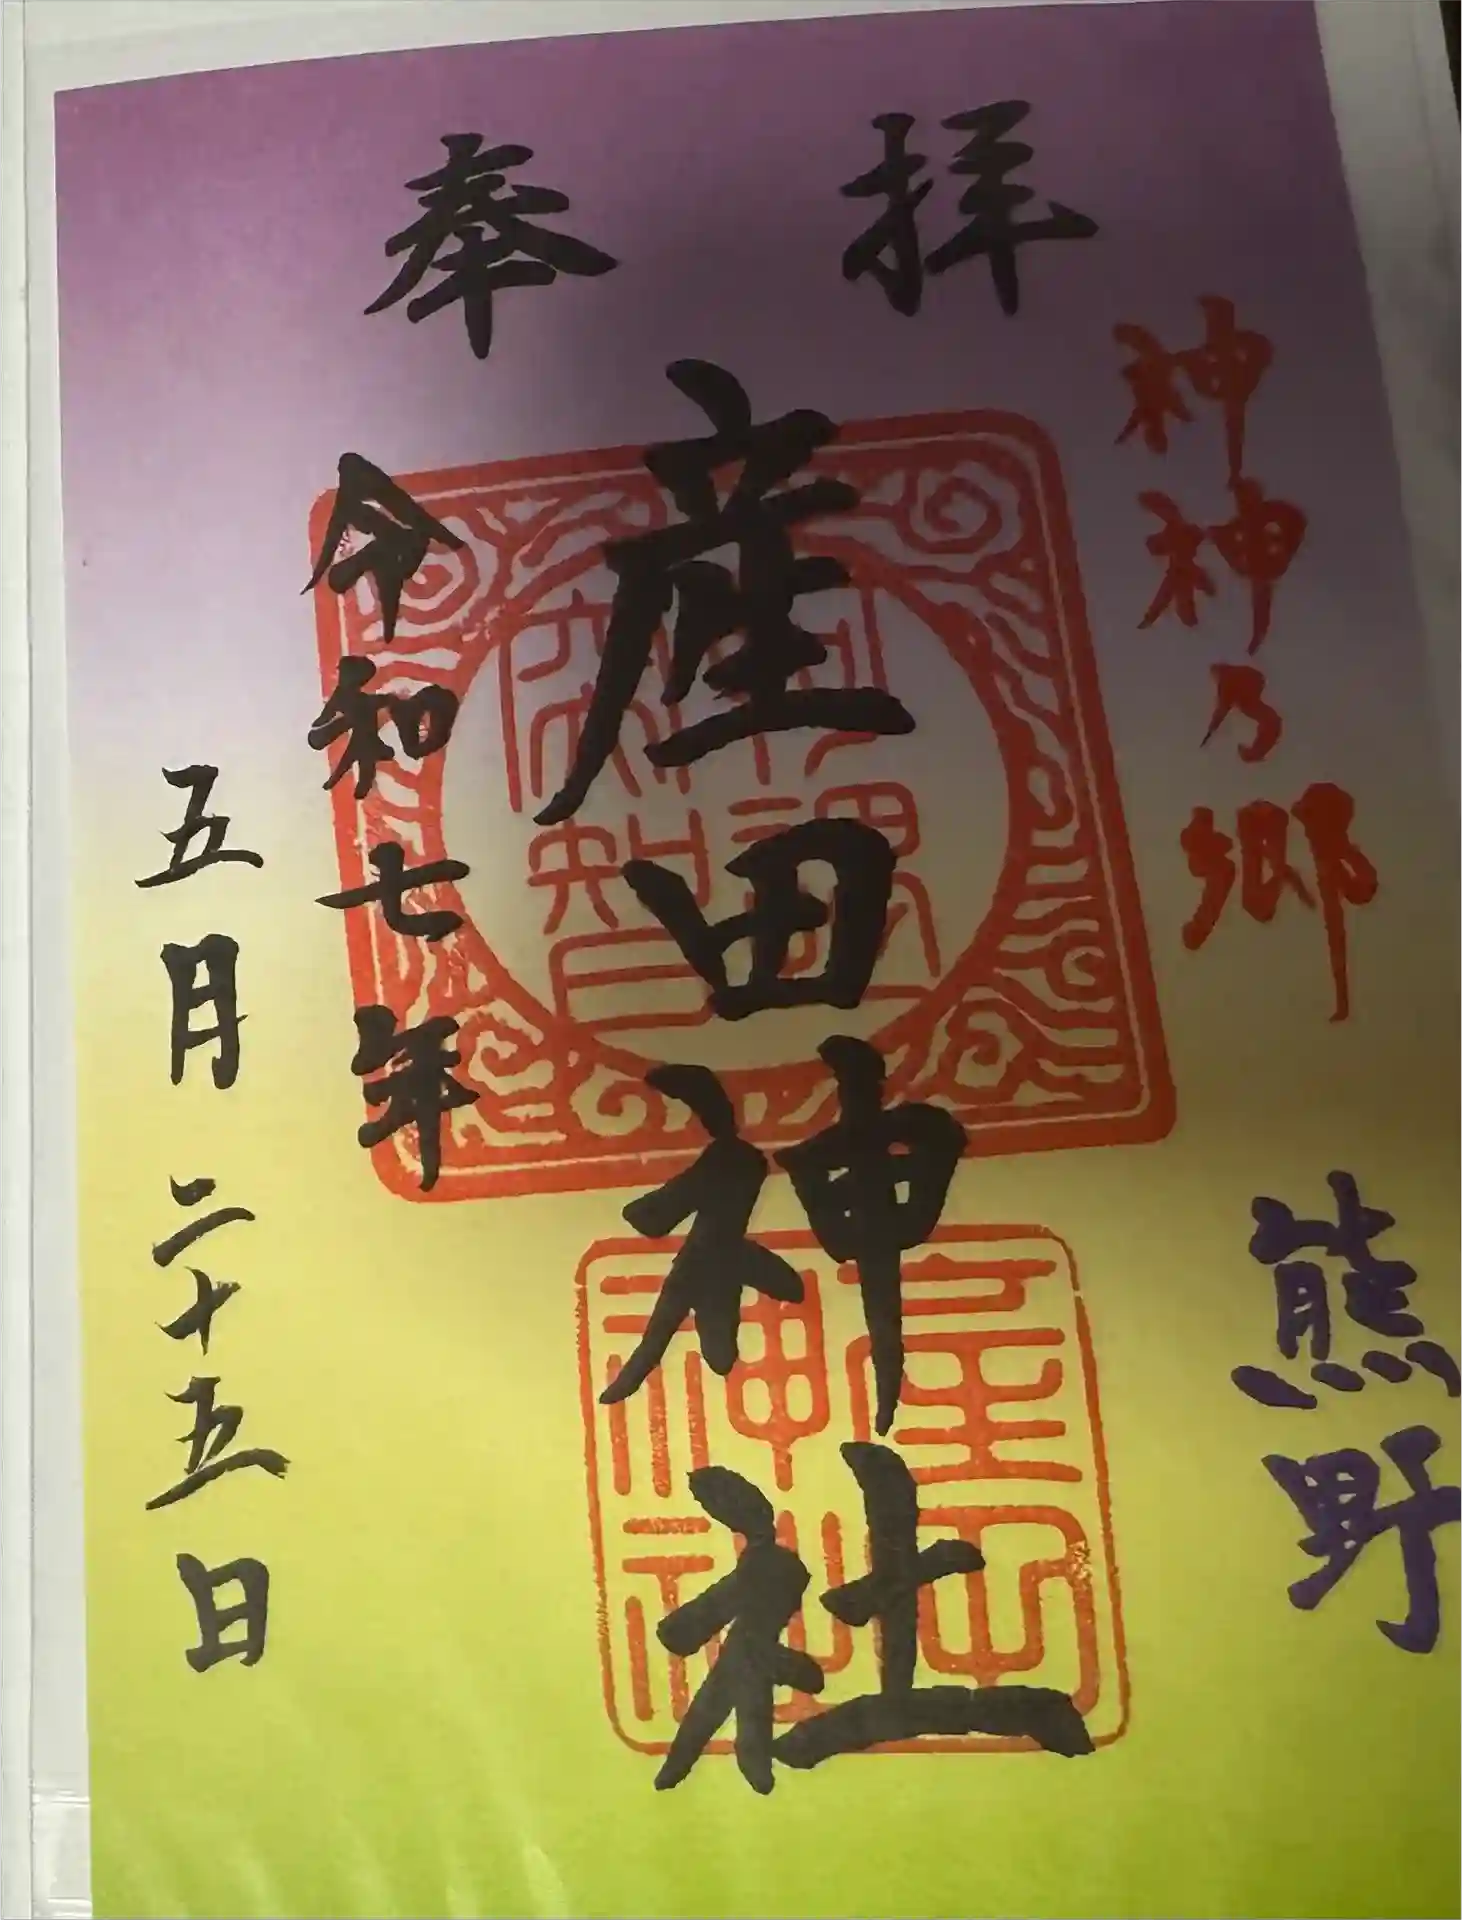 奉拝
神神乃郷
熊野
産田神社
令和七年
五月二十五日
産田
神社